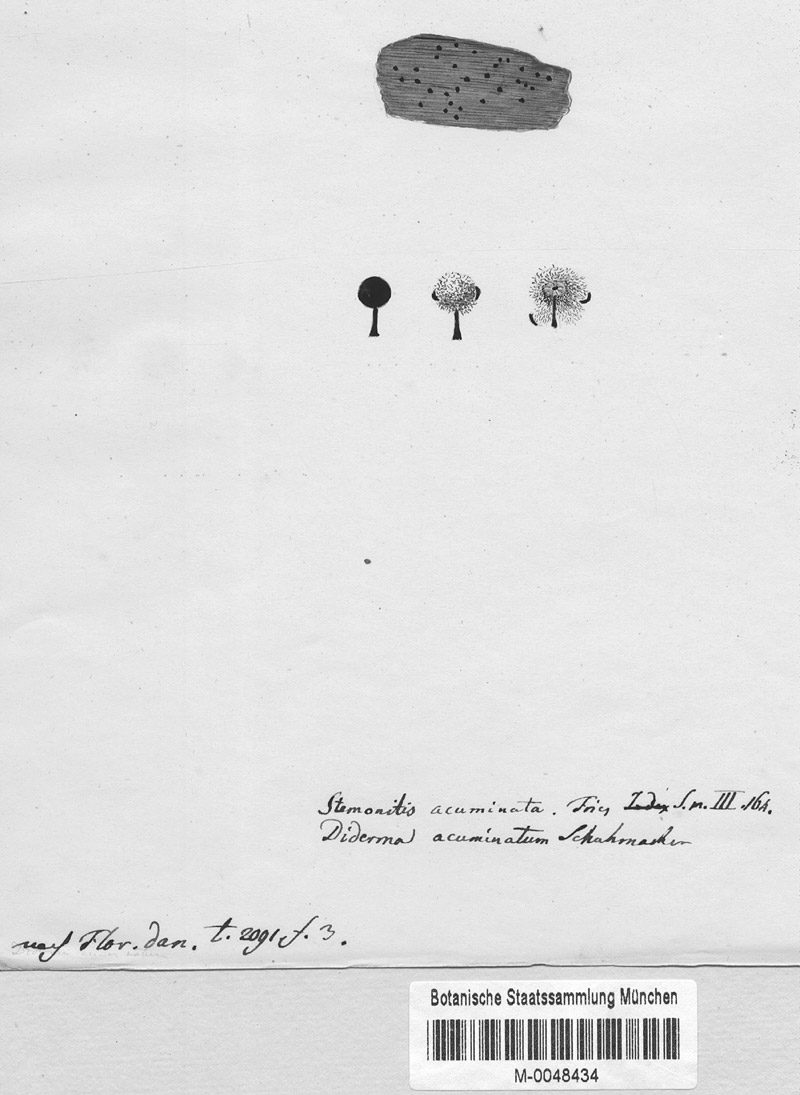 Stemonitis acuminata. Fries Index S. m. III. 164.
Diderma acuminatum Schuhmacher
nach Flor. dan. t. 2091. f. 3.
Botanische Staatssammlung München
M-0048434